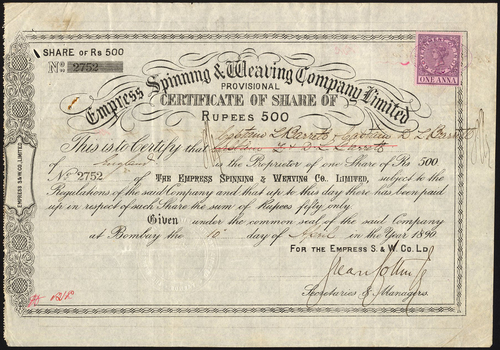 SHARE OF RS 500
No 2752
ONE ANNA
Empress Spinning & Weaving Company Limited
PROVISIONAL
CERTIFICATE OF SHARE OF
RUPEES 500
This is to Certify that
of England is the Proprietor of one Share of Rs 500
No 2752 of THE EMPRESS SPINNING & WEAVING CO. LIMITED, subject to the
Regulations of the said Company and that up to this day there has been paid
up in respect of such Share the sum of Rupees fifty only
Given under the common seal of the said Company
at Bombay the 10 day of April in the Year 1890
FOR THE EMPRESS S. & W. CO. LD
Secretaries & Managers.
EMPRESS SPIN. & W. CO. LIMITED